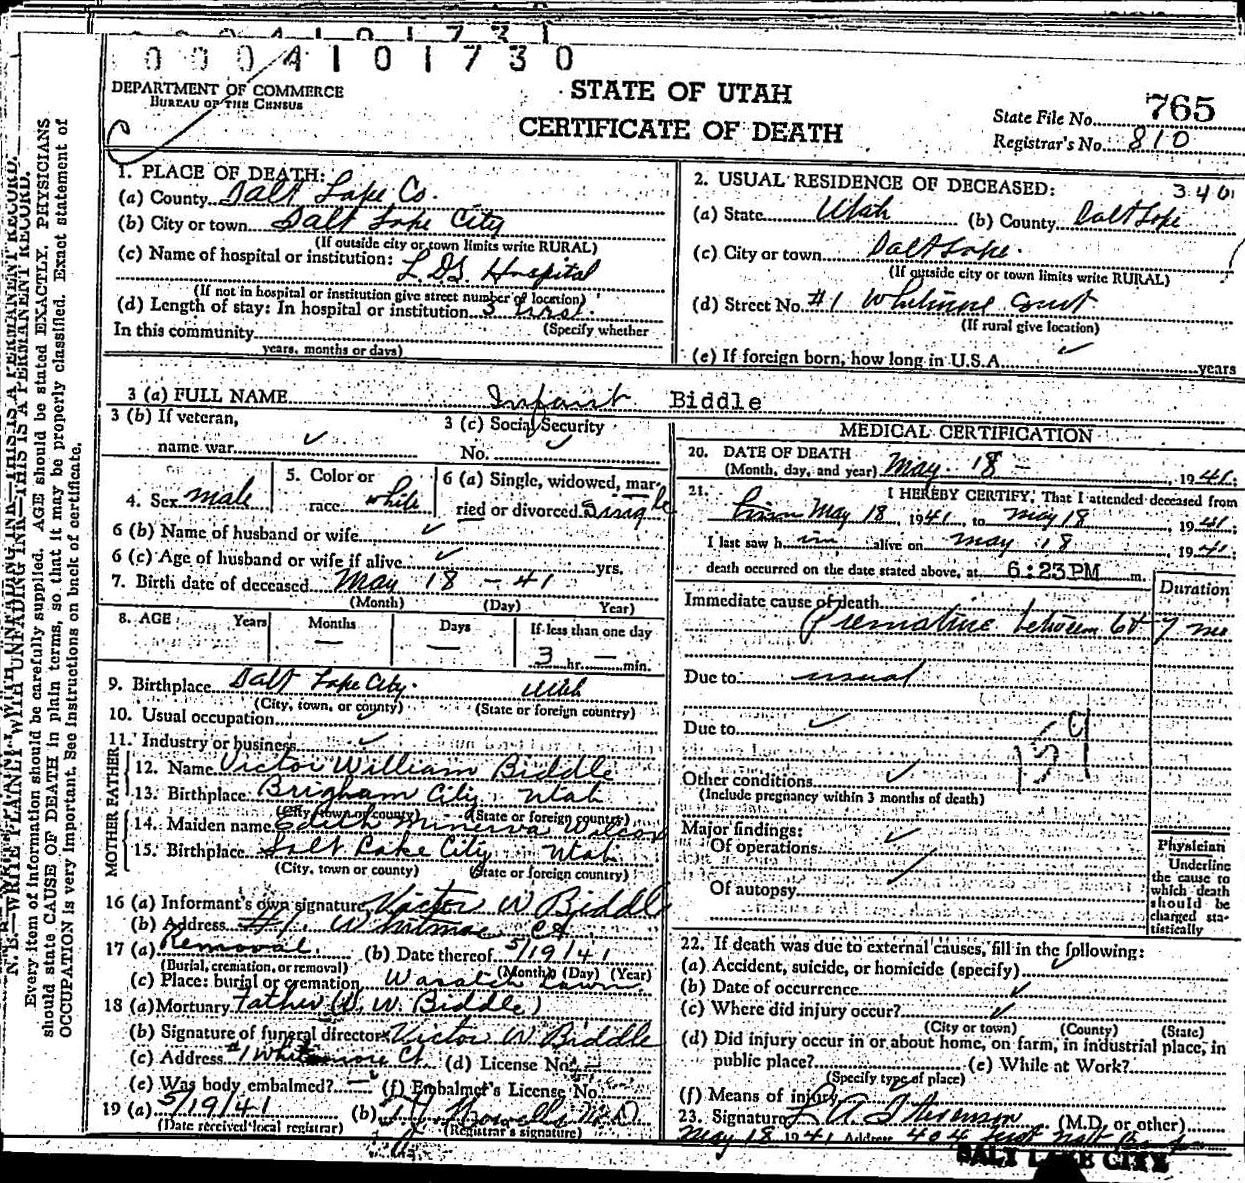 0004101730
DEPARTMENT OF COMMERCE
BUREAU OF THE CENSUS
STATE OF UTAH
CERTIFICATE OF DEATH
State File No. 765
Registrar's No. 810
1. PLACE OF DEATH:
(a) County Salt Lake Co.
(b) City or town Salt Lake City
(If outside city or town limits write RURAL)
(c) Name of hospital or institution: L.D.S. Hospital
(If not in hospital or institution give street number or location)
(d) Length of stay: In hospital or institution 3 hrs.
(Specify whether
In this community
years, months or days)
2. USUAL RESIDENCE OF DECEASED: 340
(a) State Utah (b) County Salt Lake
(c) City or town Salt Lake
(If outside city or town limits write RURAL)
(d) Street No. #1 Whitmore Court
(If rural give location)
(e) If foreign born, how long in U.S.A. years
3 (a) FULL NAME Infant Biddle
3 (b) If veteran,
name war
3 (c) Social Security
No.
4. Sex male
5. Color or
race white
6 (a) Single, widowed, mar-
ried or divorced Single
6 (b) Name of husband or wife
6 (c) Age of husband or wife if alive yrs.
7. Birth date of deceased May 18 - 41
(Month) (Day) Year)
8. AGE Years Months Days If less than one day
— — 3 hr. — min.
9. Birthplace Salt Lake City. Utah
(City, town, or county) (State or foreign country)
10. Usual occupation
11. Industry or business
FATHER
12. Name Victor William Biddle
13. Birthplace Brigham City Utah
(City, town or county) (State or foreign country)
MOTHER
14. Maiden name Edith Minerva Wilcox
15. Birthplace Salt Lake City Utah
(City, town or county) (State or foreign country)
16 (a) Informant's own signature Victor W Biddle
(b) Address #1 Whitmore Ct
17 (a) Removal. (b) Date thereof 5/19/41
(Burial, cremation, or removal) (Month) (Day) (Year)
(c) Place: burial or cremation Wasatch Lawn
18 (a) Mortuary Father (V. W. Biddle)
(b) Signature of funeral director Victor W Biddle
(c) Address #1 Whitmore Ct. (d) License No.
(e) Was body embalmed? — (f) Embalmer's License No.
19 (a) 5/19/41 (b) M.D.
(Date received local registrar) (Registrar's signature)
MEDICAL CERTIFICATION
20. DATE OF DEATH
(Month, day, and year) May 18 - , 1941;
21. I HEREBY CERTIFY, That I attended deceased from
May 18, 1941, to May 18, 1941;
I last saw h im alive on May 18, 1941;
death occurred on the date stated above, at 6:23PM m.
Duration
Immediate cause of death
Premature between 6 & 7 mo
Due to usual
Due to
159
Other conditions
(Include pregnancy within 3 months of death)
Major findings:
Of operations
Of autopsy
Physician
Underline
the cause to
which death
should be
charged sta-
tistically
22. If death was due to external causes, fill in the following:
(a) Accident, suicide, or homicide (specify)
(b) Date of occurrence
(c) Where did injury occur?
(City or town) (County) (State)
(d) Did injury occur in or about home, on farm, in industrial place, in
public place? (e) While at Work?
(Specify type of place)
(f) Means of injury
23. Signature L. A. Stevenson (M.D. or other)
May 18 1941 Address 404
SALT LAKE CITY
N. B.—WRITE PLAINLY WITH UNFADING INK—THIS IS A PERMANENT RECORD.
Every item of information should be carefully supplied. AGE should be stated EXACTLY. PHYSICIANS
should state CAUSE OF DEATH in plain terms, so that it may be properly classified. Exact statement of
OCCUPATION is very important. See instructions on back of certificate.